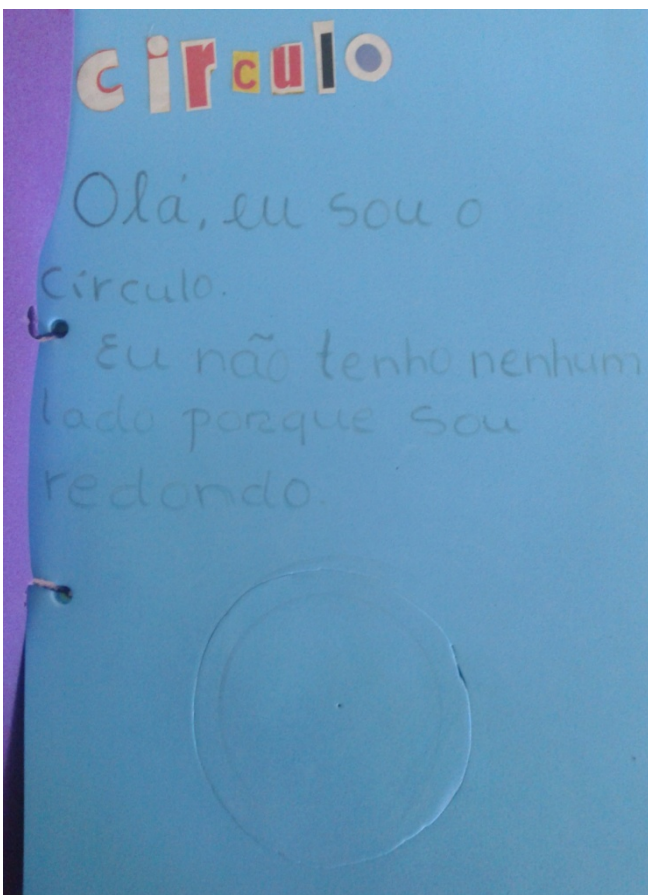 circulo
Olá, eu sou o
círculo.
Eu não tenho nenhum
lado porque sou
redondo.